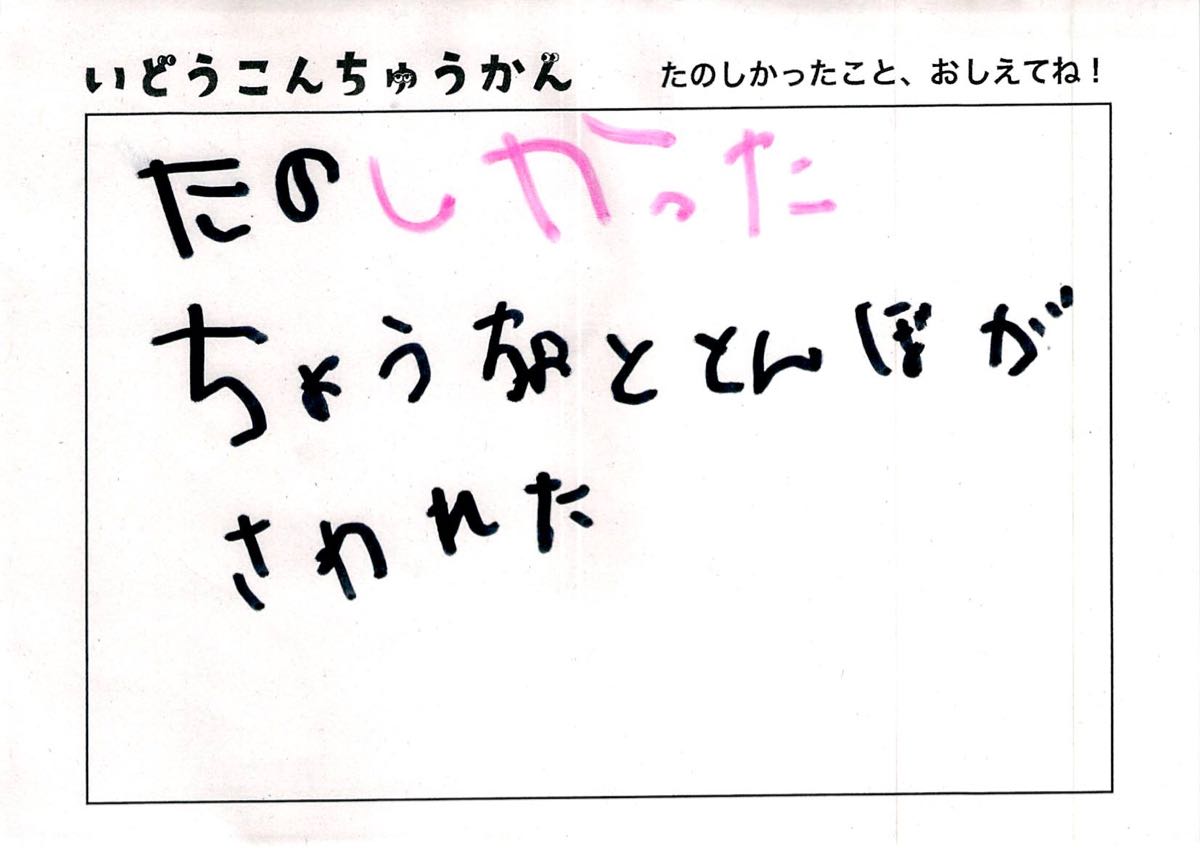 いどうこんちゅうかん
たのしかったこと、おしえてね！
たのしかった
ちょうちょととんぼが
さわれた